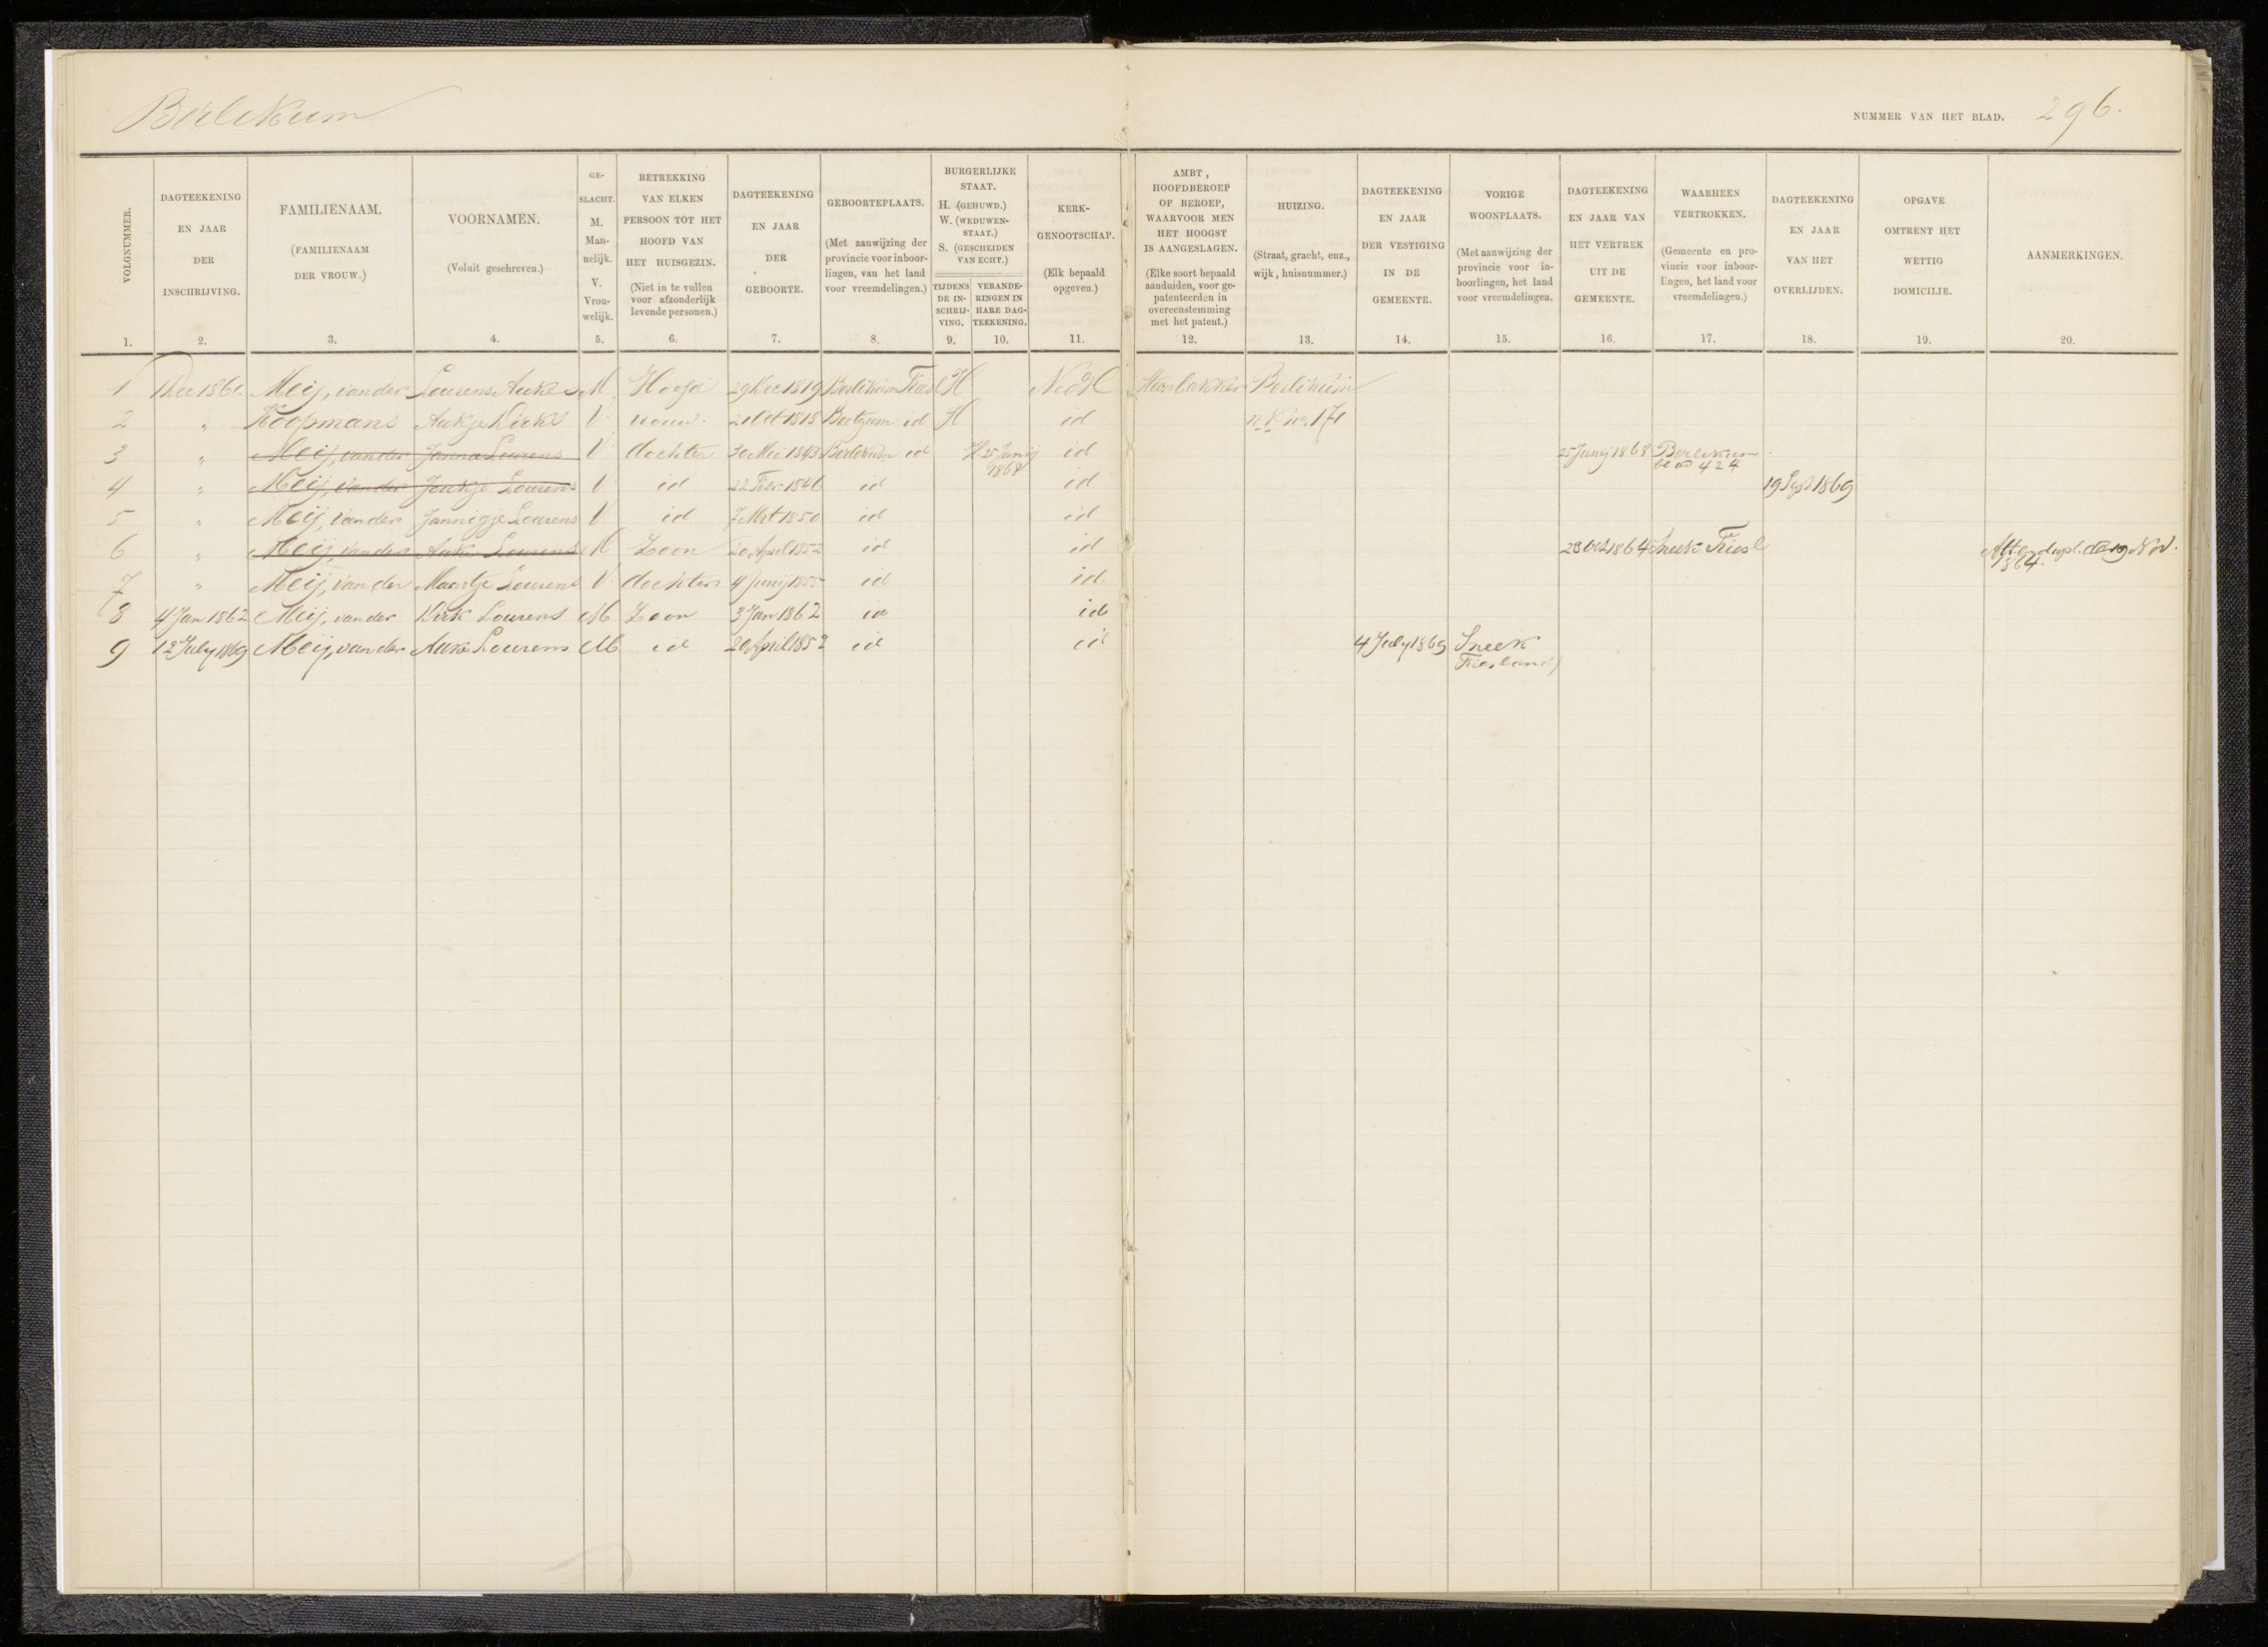 Berlikum
NUMMER VAN HET BLAD. 296.
VOLGNUMMER.
1.
DAGTEEKENING
EN JAAR
DER
INSCHRIJVING.
2.
FAMILIENAAM.
(FAMILIENAAM
DER VROUW.)
3.
VOORNAMEN.
(Voluit geschreven.)
4.
GE-
SLACHT.
M.
Man-
nelijk.
V.
Vrou-
welijk.
5.
BETREKKING
VAN ELKEN
PERSOON TOT HET
HOOFD VAN
HET HUISGEZIN.
(Niet in te vullen
voor afzonderlijk
levende personen.)
6.
DAGTEEKENING
EN JAAR
DER
GEBOORTE.
7.
GEBOORTEPLAATS.
(Met aanwijzing der
provincie voor inboor-
lingen, van het land
voor vreemdelingen.)
8.
BURGERLIJKE
STAAT.
H. (GEHUWD.)
W. (WEDUWEN-
STAAT.)
S. (GESCHEIDEN
VAN ECHT.)
TIJDENS
DE IN-
SCHRIJ-
VING.
9.
VERANDE-
RINGEN IN
HARE DAG-
TEEKENING.
10.
KERK-
GENOOTSCHAP.
(Elk bepaald
opgeven.)
11.
AMBT,
HOOFDBEROEP
OF BEROEP,
WAARVOOR MEN
HET HOOGST
IS AANGESLAGEN.
(Elke soort bepaald
aanduiden, voor ge-
patenteerden in
overeenstemming
met het patent.)
12.
HUIZING.
(Straat, gracht, enz.,
wijk, huisnummer.)
13.
DAGTEEKENING
EN JAAR
DER VESTIGING
IN DE
GEMEENTE.
14.
VORIGE
WOONPLAATS.
(Met aanwijzing der
provincie voor in-
boorlingen, het land
voor vreemdelingen.
15.
DAGTEEKENING
EN JAAR VAN
HET VERTREK
UIT DE
GEMEENTE.
16.
WAARHEEN
VERTROKKEN.
(Gemeente en pro-
vincie voor inboor-
lingen, het land voor
vreemdelingen.)
17.
DAGTEEKENING
EN JAAR
VAN HET
OVERLIJDEN.
18.
OPGAVE
OMTRENT HET
WETTIG
DOMICILIE.
19.
AANMERKINGEN.
20.
1 1 Dec 1861. Meij, van der Lourens Aukes M Hoofd 29 Dec 1819 Berlikum Friesl H NedH Berlikum
2 " Koopmans Aukje Dirks V vrouw. 21 Oct 1818 Beetgum id H id 171
3 " Meij, van der Janna Lourens V dochter 30 Mei 1843 Berlikum id H 25 Junij 1868 id 25 Junij 1868 Berlikum blad 424
4 " Meij, van der Jeukje Lourens V id 22 Febr 1846 id id 19 Sept 1869
5 " Meij, van der Jannigje Lourens V id 7 Mrt 1850 id id
6 " Meij, van der Auke Lourens M Zoon 20 April 1852 id id 28 Oct 1864 Sneek Friesl 19 Nov. 1864.
7 " Meij, van der Maartje Lourens V dochter 4 Junij 1855 id id
8 4 Jan 1862 Meij, van der Dirk Lourens M Zoon 3 Jan 1862 id id
9 12 July 1869 Meij, van der Auke Lourens M id 20 April 1852 id id 4 July 1869 Sneek
Friesland)